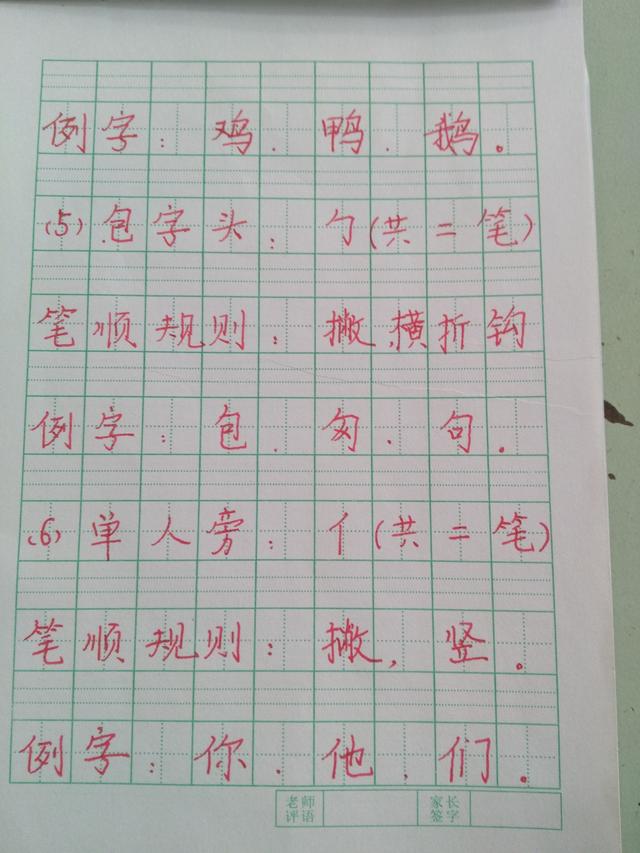 例字：鸡．鸭．鹅。
(5)包字头：勹(共二笔)
笔顺规则：撇,横折钩
例字：包．匆．句．
(6)单人旁：亻(共二笔)
笔顺规则：撇，竖。
例字：你．他．们．
老师评语
家长签字